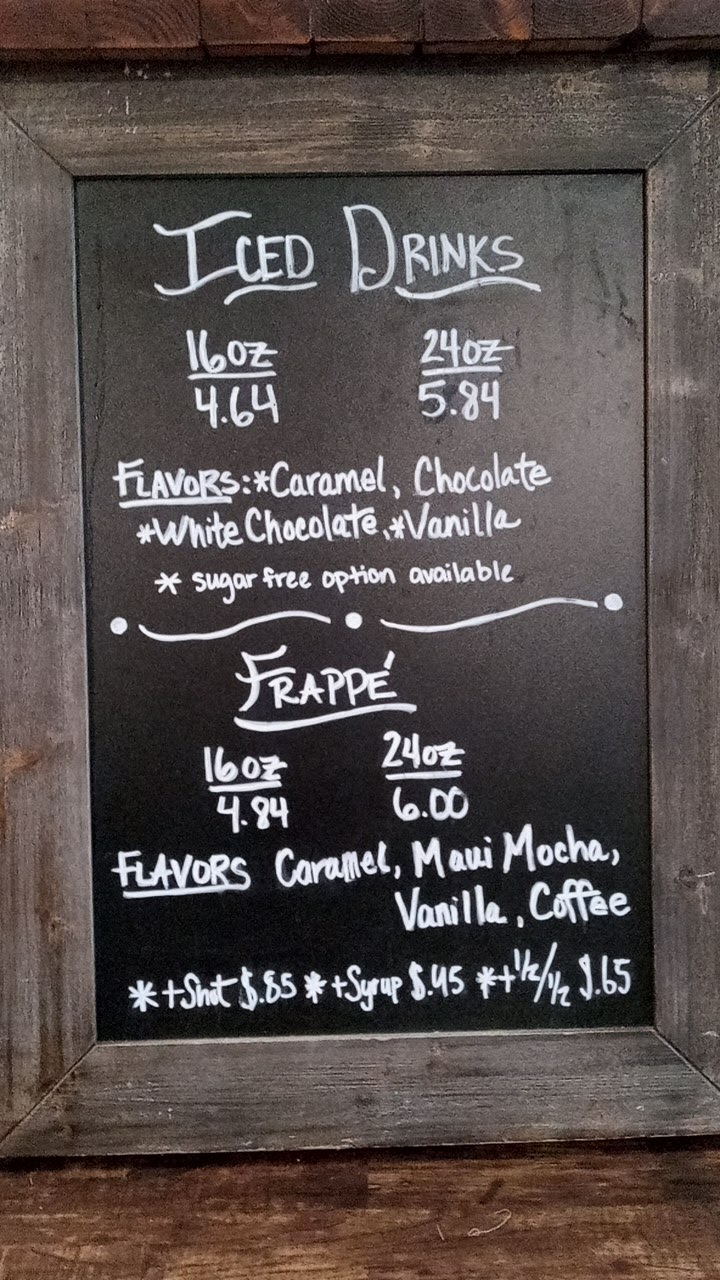 ICED DRINKS
16oz 24oz
4.64 5.84
FLAVORS: *Caramel, Chocolate
*White Chocolate, *Vanilla
* sugar free option available
FRAPPÉ
16oz 24oz
4.84 6.00
FLAVORS Caramel, Maui Mocha,
Vanilla, Coffee
* +Shot $.85 * +Syrup $.45 * +1/2/1/2 $.65